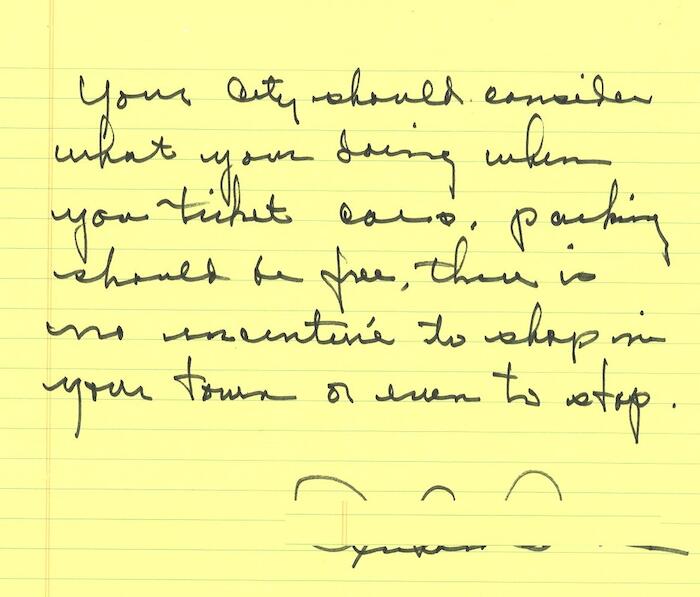 Your City should consider
what your doing when
you ticket cars. parking
should be free, there is
no incentive to shop in
your town or even to stop.